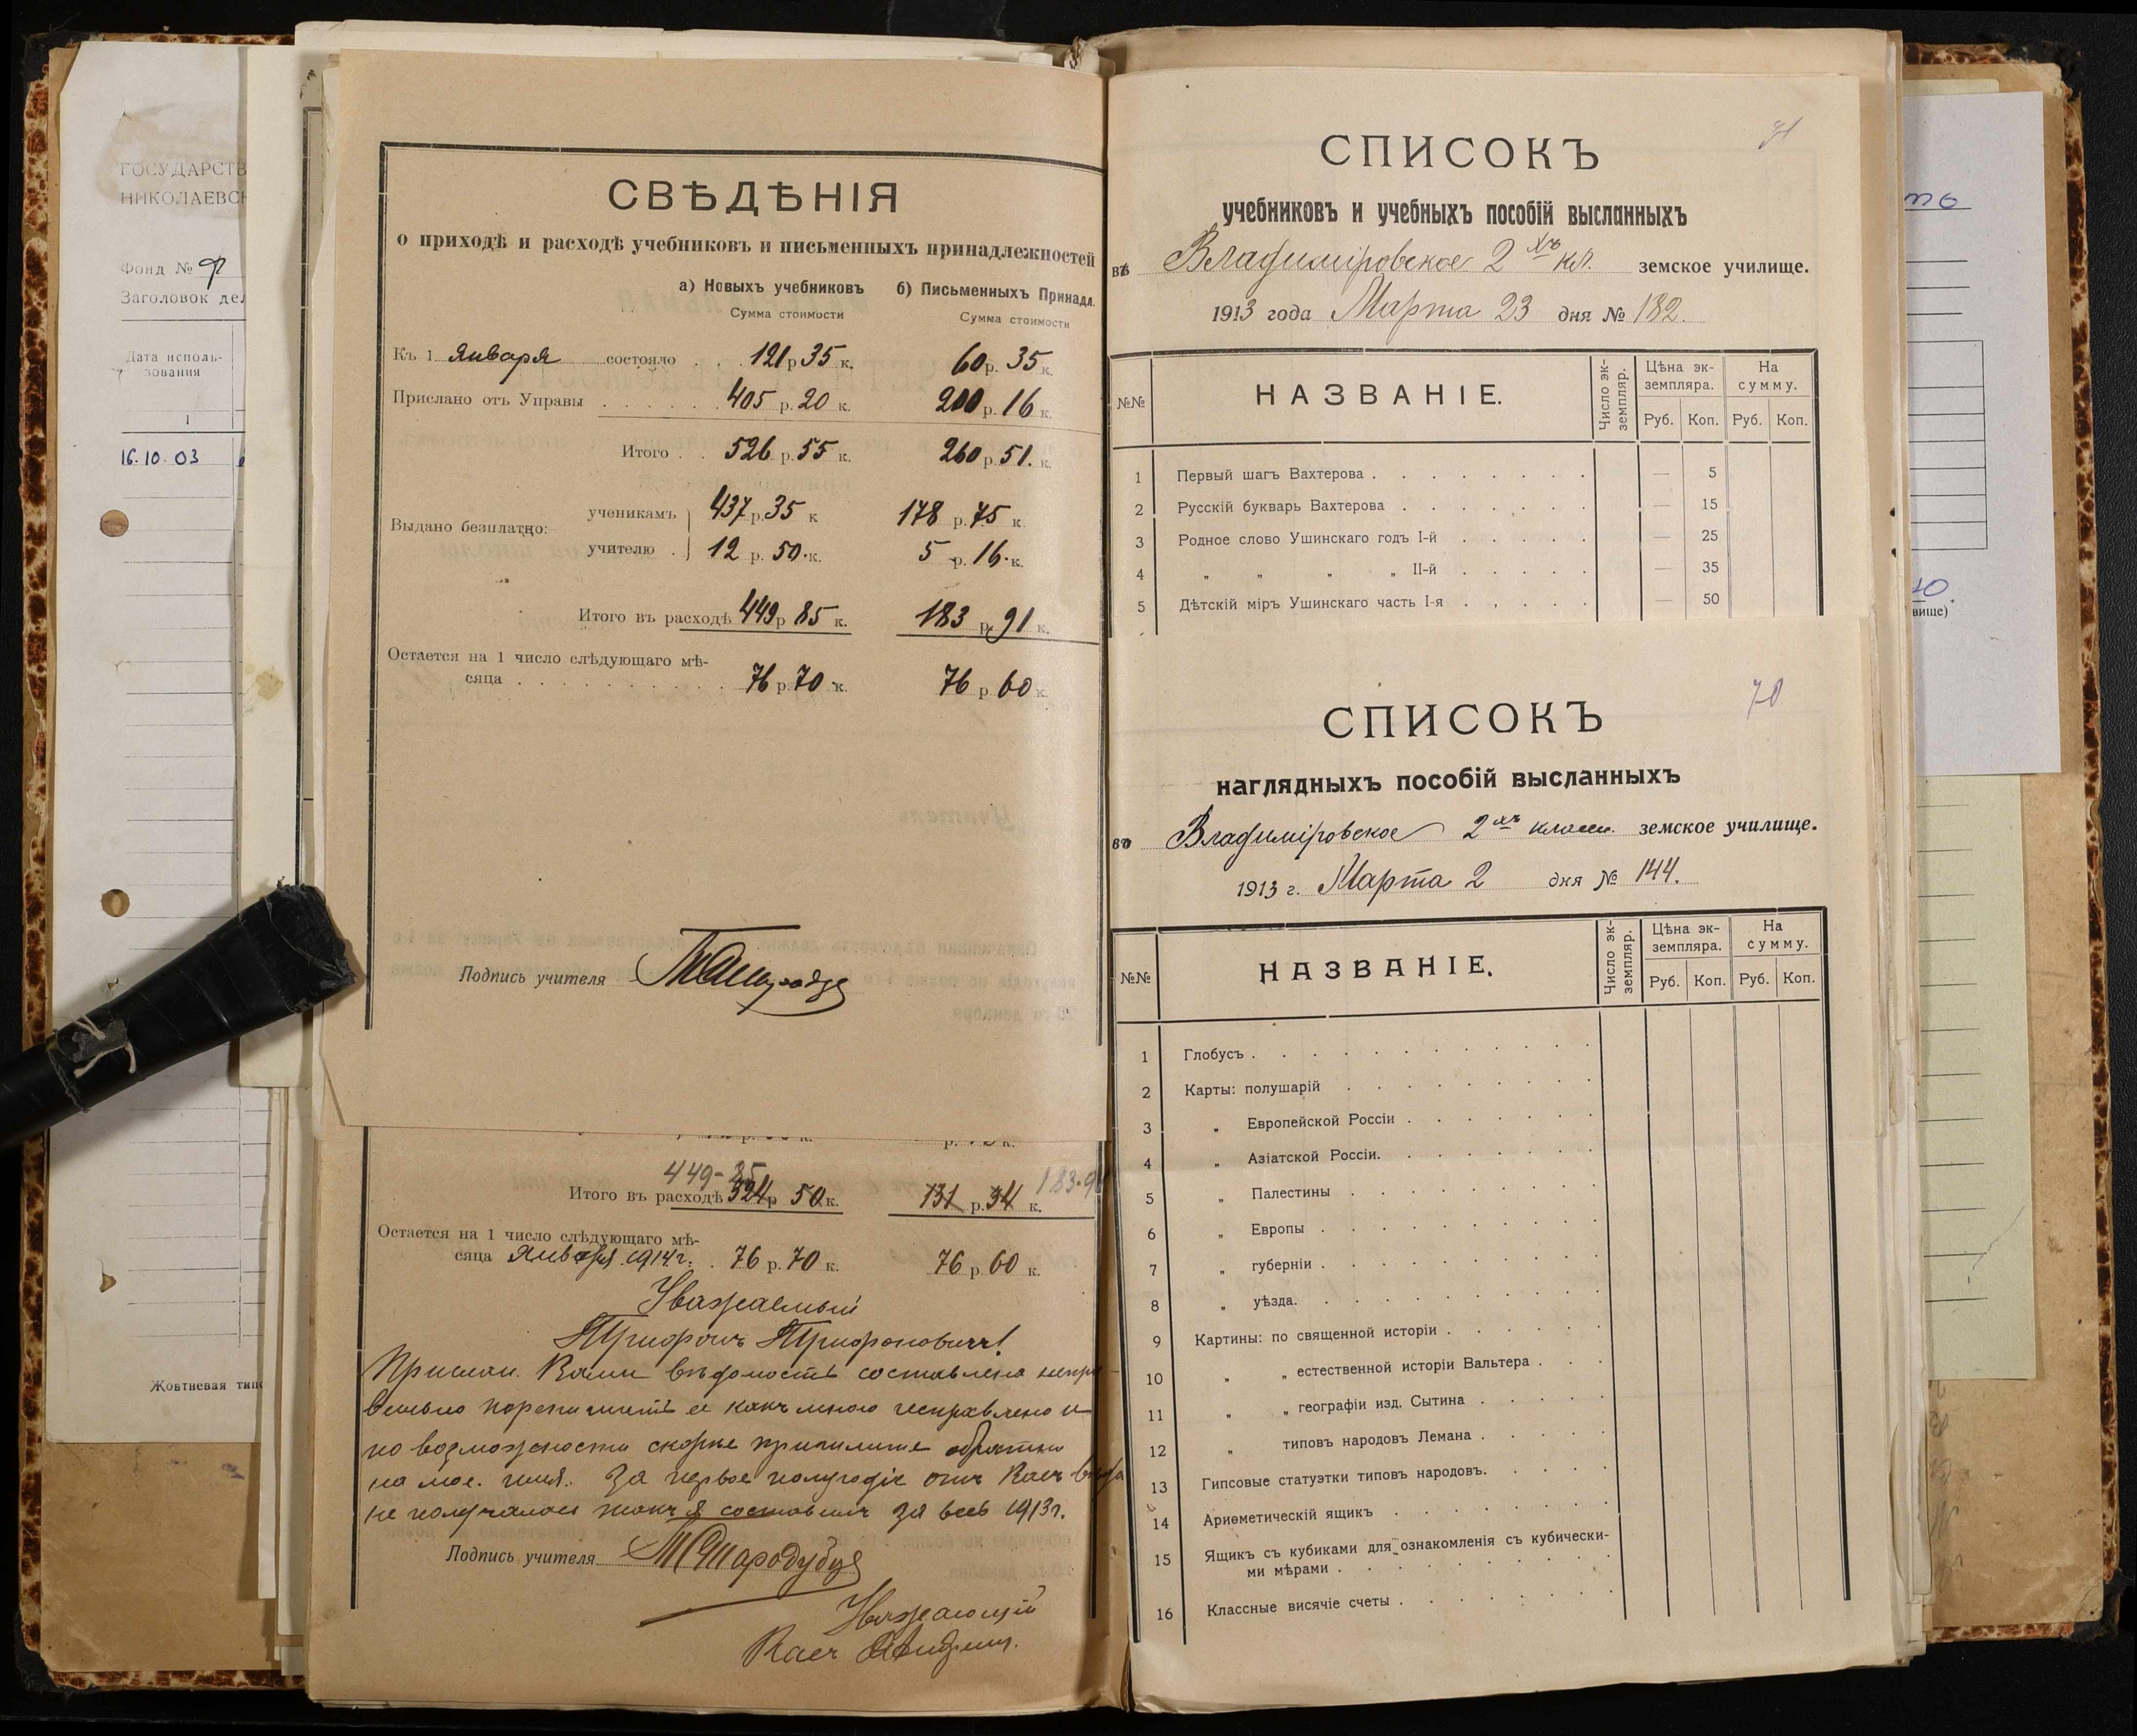 ГОСУДАРСТВ
НИКОЛАЕВСК
Фонд № Р
Заголовок дел
Дата исполь-
зования
1
16.10.03
Жовтневая типо
СВѢДѢНІЯ
о приходѣ и расходѣ учебниковъ и письменныхъ принадлежностей
а) Новыхъ учебниковъ б) Письменныхъ Принадл.
Сумма стоимости Сумма стоимости
Къ 1 Января состояло 121 р 35 к. 60 р. 35 к.
Прислано отъ Управы 405 р. 20 к. 200 р. 16 к.
Итого 526 р. 55 к. 260 р. 51. к.
Выдано безплатно: ученикамъ 437 р. 35 к 178 р. 75 к.
учителю 12 р. 50 к. 5 р. 16 к.
Итого въ расходѣ 449 р 85 к. 183 р. 91 к.
Остается на 1 число слѣдующаго мѣ-
сяца 76 р. 70 к. 76 р. 60 к.
Подпись учителя
449-85 183-9
Итого въ расходѣ 324 р 50 к. 131 р. 34 к.
Остается на 1 число слѣдующаго мѣ-
сяца Января 1914 г. 76 р. 70 к. 76 р. 60 к.
Уважаемый
Трифонъ Трифоновичъ!
Прислан. Вами вѣдомость составлена непра-
вильно перепишите ее какъ мною исправлено и
по возможности скорѣе пришлите обратно
на мое имя. За первое полугодіе отъ Васъ
не получалось такъ я составилъ за весь 1913 г.
Подпись учителя Т Стародубце
Уважающій
Васъ
71
СПИСОКЪ
учебниковъ и учебныхъ пособій высланныхъ
въ Владимировское 2хъ кл. земское училище.
1913 года Марта 23 дня № 182.
№№ НАЗВАНІЕ. Число эк-земпляр. Цѣна эк-земпляра. На сумму.
Руб. Коп. Руб. Коп.
1 Первый шагъ Вахтерова — 5
2 Русскій букварь Вахтерова — 15
3 Родное слово Ушинскаго годъ I-й — 25
4 „ „ „ „ II-й — 35
5 Дѣтскій міръ Ушинскаго часть I-я — 50
70
СПИСОКЪ
наглядныхъ пособій высланныхъ
въ Владимировское 2хъ класн. земское училище.
1913 г. Марта 2 дня № 144.
№№ НАЗВАНІЕ. Число эк-земпляр. Цѣна эк-земпляра. На сумму.
Руб. Коп. Руб. Коп.
1 Глобусъ
2 Карты: полушарій
3 „ Европейской Россіи
4 „ Азіатской Россіи.
5 „ Палестины
6 „ Европы
7 „ губерніи
8 „ уѣзда.
9 Картины: по священной исторіи
10 „ „ естественной исторіи Вальтера
11 „ „ географіи изд. Сытина
12 „ типовъ народовъ Лемана
13 Гипсовые статуэтки типовъ народовъ.
14 Ариѳметическій ящикъ
15 Ящикъ съ кубиками для ознакомленія съ кубически-
ми мѣрами
16 Классные висячіе счеты
вище)